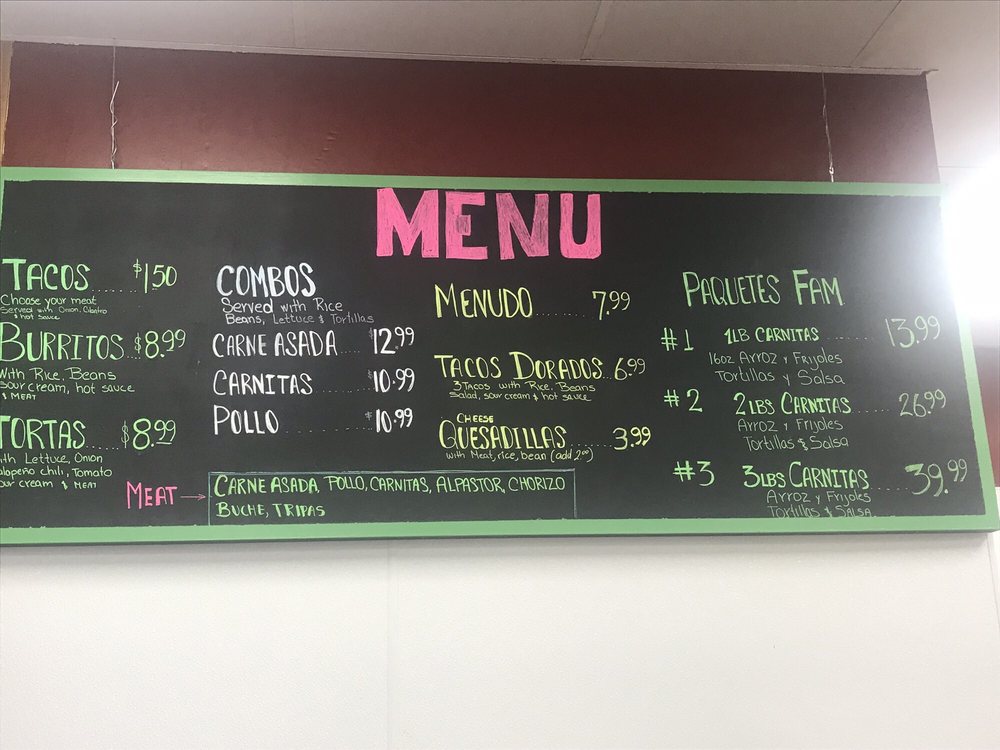 MENU
TACOS ...... $1.50
Choose your meat
Served with Onion, Cilantro
& hot sauce
BURRITOS.. $8.99
With Rice, Beans
sour cream, hot sauce
& MEAT
TORTAS .... $8.99
With Lettuce, Onion
Jalapeño chili, Tomato
sour cream & MEAT
COMBOS
Served with Rice
Beans, Lettuce & Tortillas
CARNE ASADA .... $12.99
CARNITAS ....... $10.99
POLLO ......... $10.99
MEAT →
CARNE ASADA, POLLO, CARNITAS, ALPASTOR, CHORIZO
BUCHE, TRIPAS
MENUDO ....... 7.99
TACOS DORADOS.. 6.99
3 TACOS with Rice, Beans
Salad, sour cream & hot sauce
CHEESE
QUESADILLAS ..... 3.99
with Meat, rice, bean (add 2.00)
PAQUETES FAM
#1 1LB CARNITAS ....... 13.99
16oz Arroz y Frijoles
Tortillas y Salsa
#2 2LBS CARNITAS ...... 26.99
Arroz y Frijoles
Tortillas & Salsa
#3 3LBS CARNITAS ..... 39.99
Arroz y Frijoles
Tortillas & Salsa